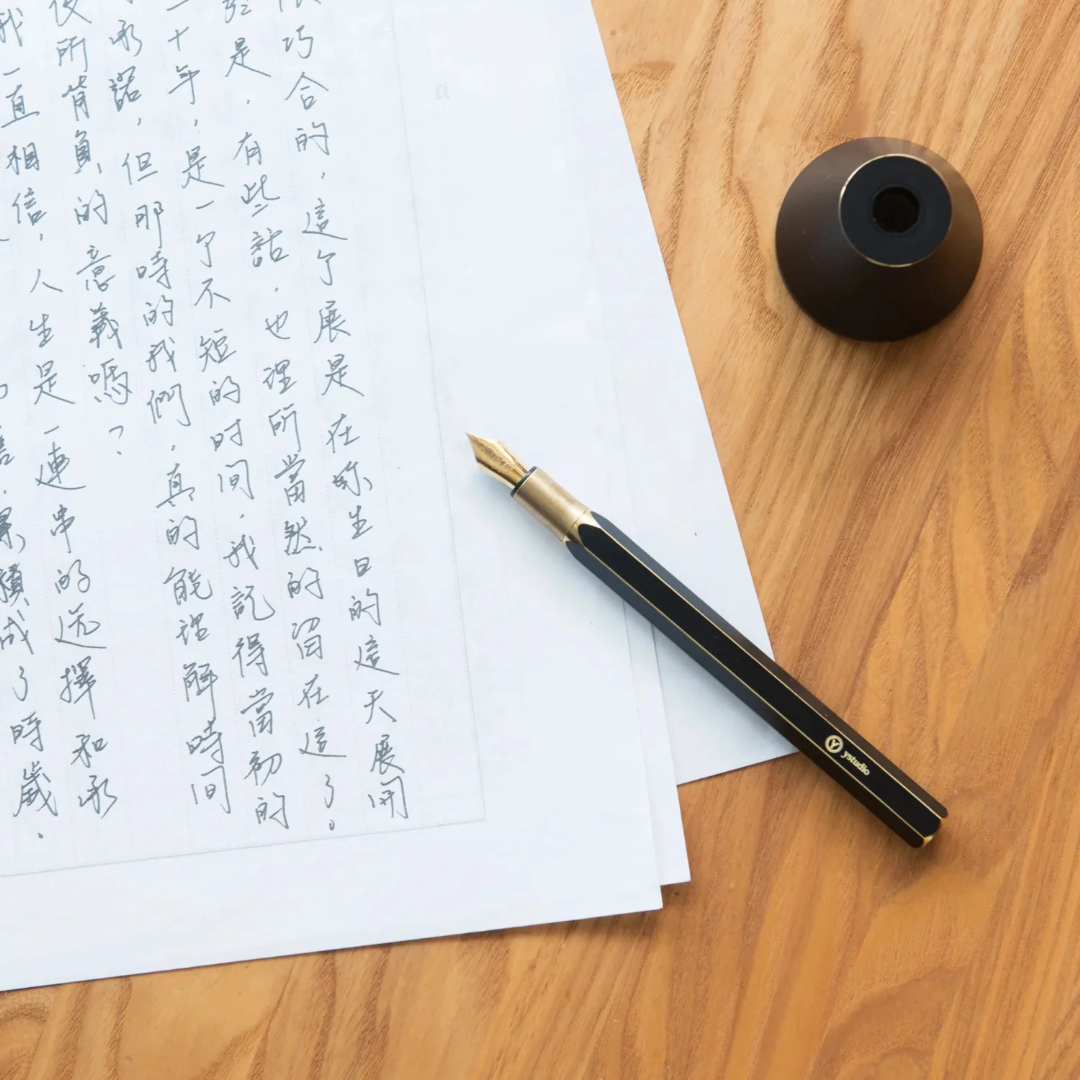 巧合的，這个展是在妳生日的這天展開
是，有些話，也理所當然的留在這了。
二十年，是一个不短的时间，我記得當初的
承諾，但那時的我們，真的能理解時间
所背負的意義嗎？
我一直相信，人生是一連串的选擇和承
累積成了時歲．
ystudio